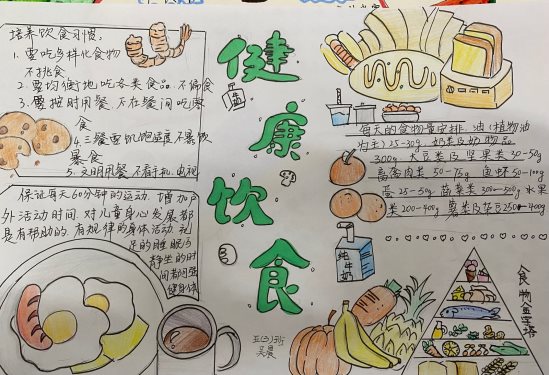 培养饮食习惯。
1. 要吃多样化食物
不挑食
2. 要均衡地吃各类食品 不偏食
3. 要按时用餐 不在餐间吃零
食
4. 三餐要饥饱适度不暴饮
暴食
5. 文明用餐 不看手机 电视
保证每天60分钟的运动. 增加户
外活动时间. 对儿童身心发展都
是有帮助的. 有规律的身体活动. 充
足的睡眠与
静坐的时
间都可强
健身体
健康饮食
每天的食物量安排. 油(植物油
为主) 25-30g 奶类及奶物品
300g 大豆类及坚果类 30-50g
畜禽肉类 50-75g 鱼虾 50-100g
蛋 25-50g 蔬菜类 300-500g 水果
类 200-400g 薯类及杂豆 250-400g
纯牛奶
食物金字塔
五(3)班
吴晨